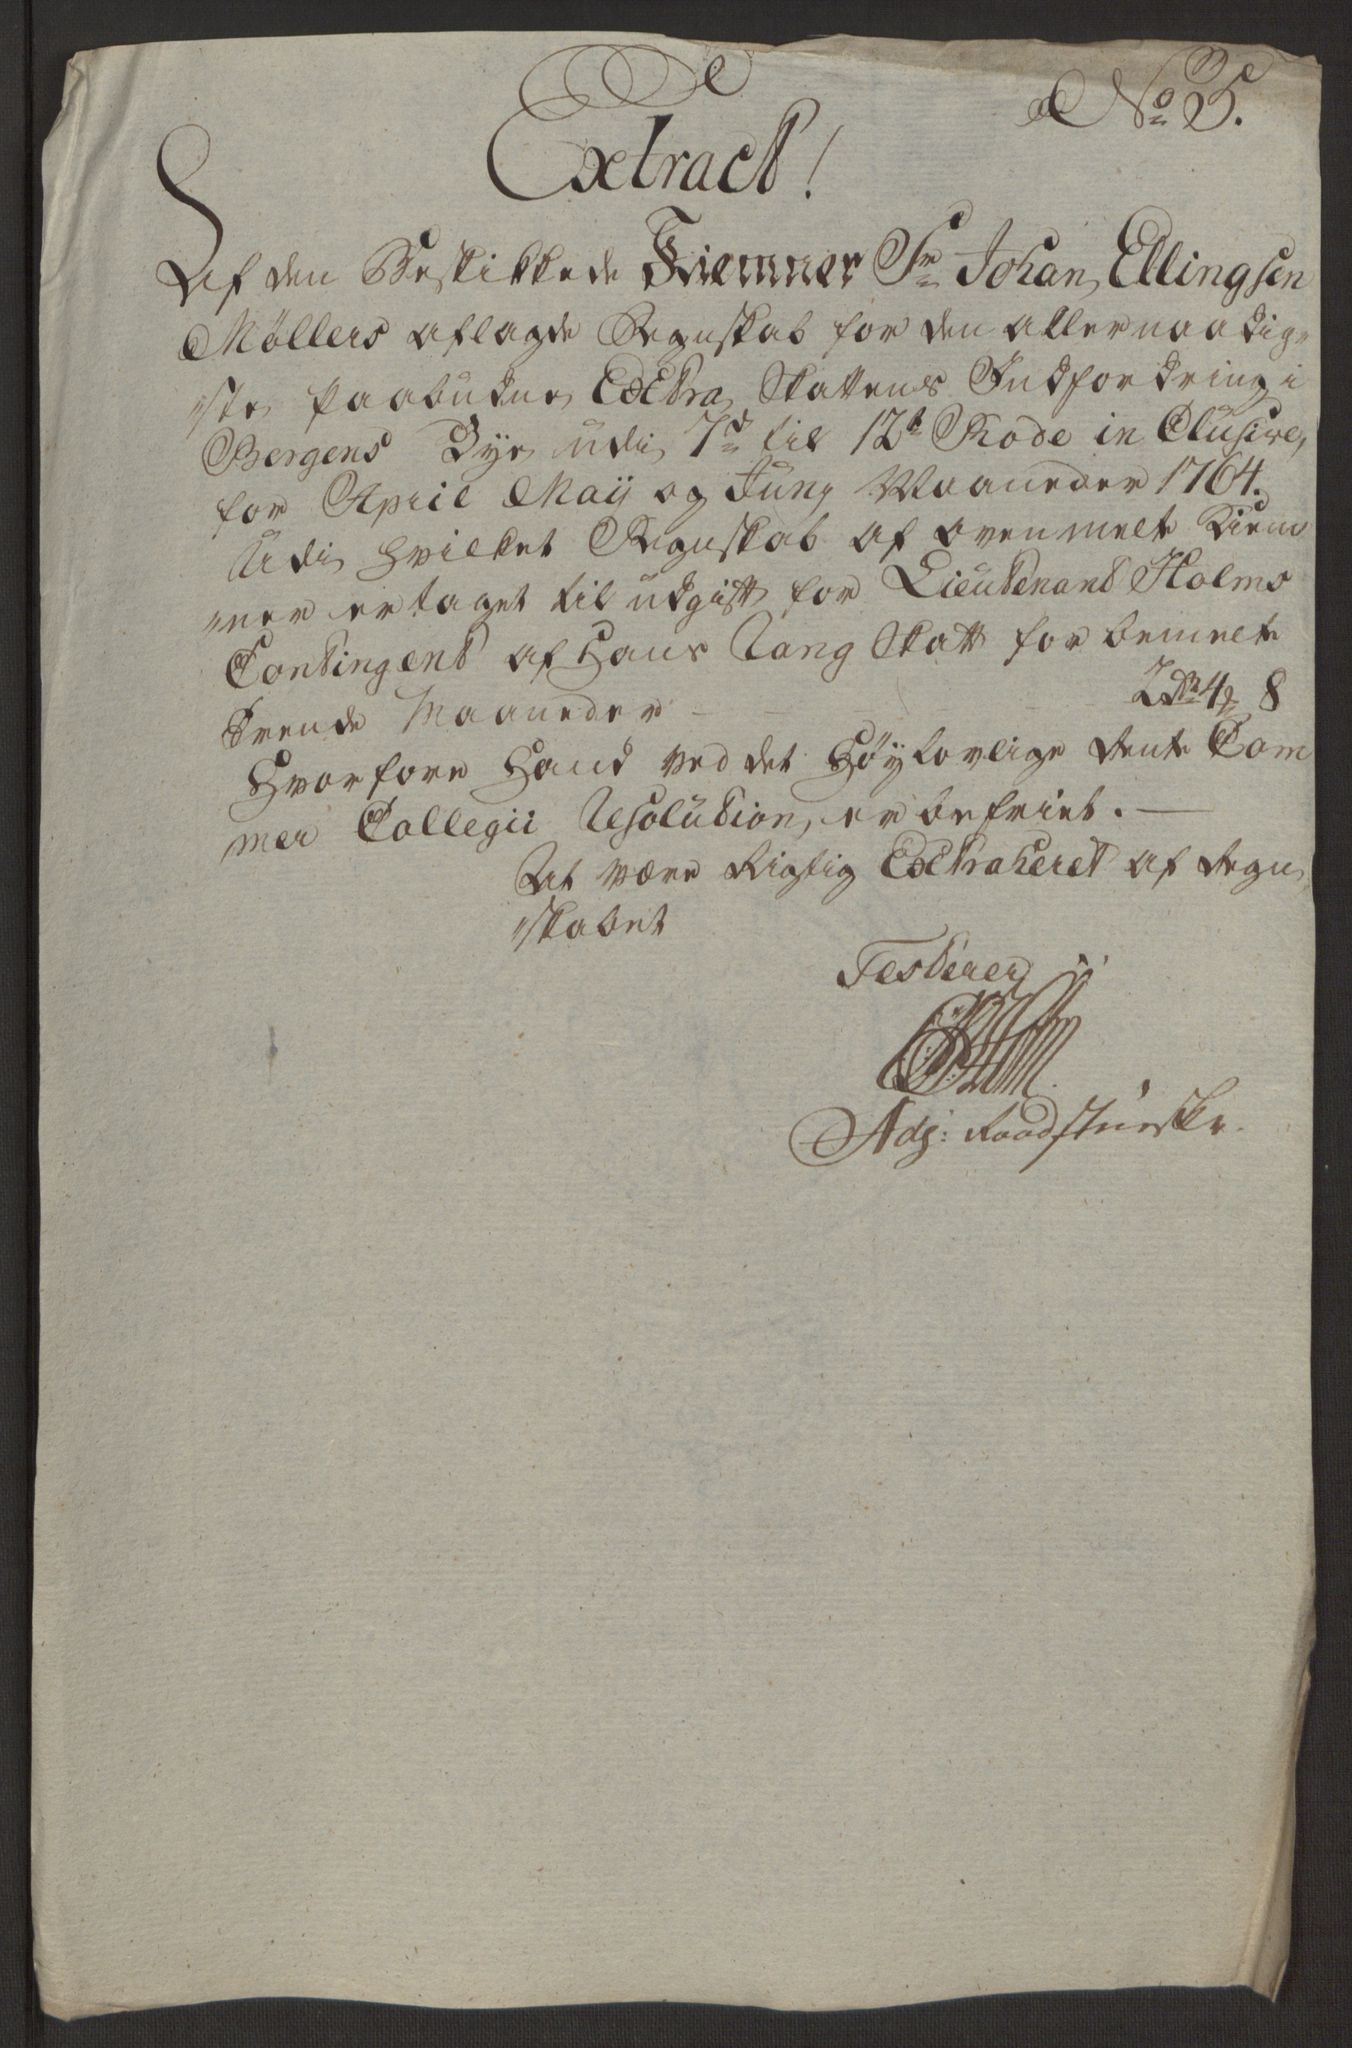 No 5.
Extract!
Af den Beskikkede Kiemner Sr Johan Ellingsen
Møllers aflagde Regnskab for den allernaadig-
ste paabudne Extra Skattens Indfordring i
Bergens Bye udi 7d til 12t Rode in Clusive,
for April Maij og Juny Maaneder 1764.
Udi hvilket Regnskab af ovenmelte Kiem
ner er taget til udgift for Lieutenant Holms
Contingent af Hans Rang Skatt for bemelte
Trende Maaneder - - - 4 8
Hvorfore Hand ved det Høylovlige Rente Cam
mer Collegii Resolution, er befriet. —
At være Rigtig Extraheret af Regn
skabet
Testerer
Adj: Raadstueskr.